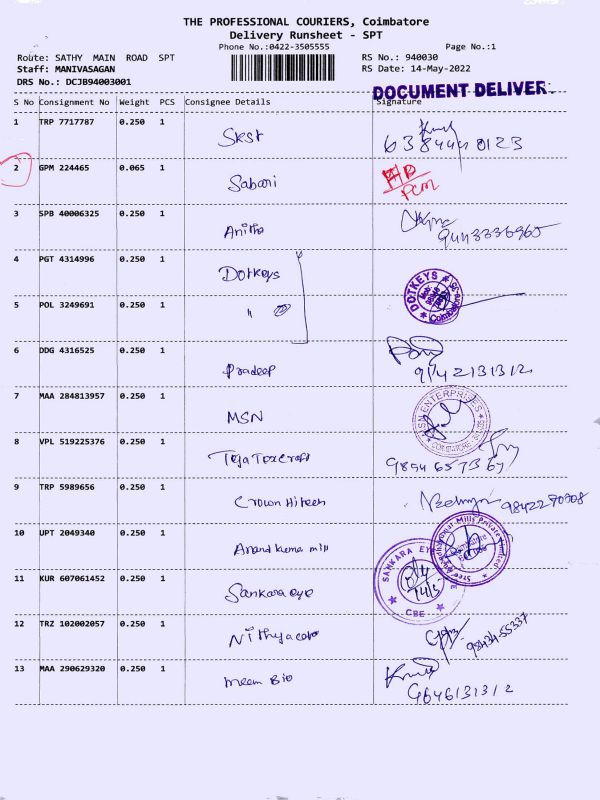 THE PROFESSIONAL COURIERS, Coimbatore
Delivery Runsheet - SPT
Phone No.:0422-3505555
Page No.:1
Route: SATHY MAIN ROAD SPT
RS No.: 940030
Staff: MANIVASAGAN
RS Date: 14-May-2022
DRS No.: DCJB94003001
DOCUMENT DELIVER.
S No Consignment No Weight PCS Consignee Details Signature
1 TRP 7717787 0.250 1 SKST
2 GPM 224465 0.065 1 Sabari
PCM
3 SPB 40006325 0.250 1 Anitha
4 PGT 4314996 0.250 1 Dotkeys
DOTKEYS
5 POL 3249691 0.250 1 "
6 DDG 4316525 0.250 1 Pradeep
9142131312
7 MAA 284813957 0.250 1 MSN
MSN ENTERPRISES
8 VPL 519225376 0.250 1
9 TRP 5989656 0.250 1 Crown Hitech
10 UPT 2049340 0.250 1 Anand kuma mill
11 KUR 607061452 0.250 1 Sankara eye
SANKARA EYE
CBE
12 TRZ 102002057 0.250 1
98434-55337
13 MAA 290629320 0.250 1 meem Bio
9646131312